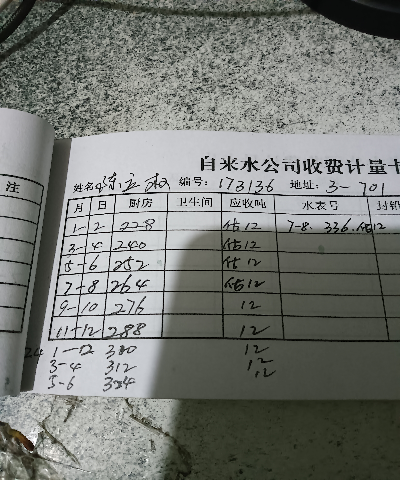 自来水公司收费计量卡
姓名 陈立权 编号: 173136 地址: 3-701
注
月 日 厨房 卫生间 应收吨 水表号 封铅
1-2 228 估12 7-8. 336. 估12
3-4 240 估12
5-6 252 估12
7-8 264 估12
9-10 276 12
11-12 288 12
24 1-12 300 12
3-4 312 12
5-6 324 12